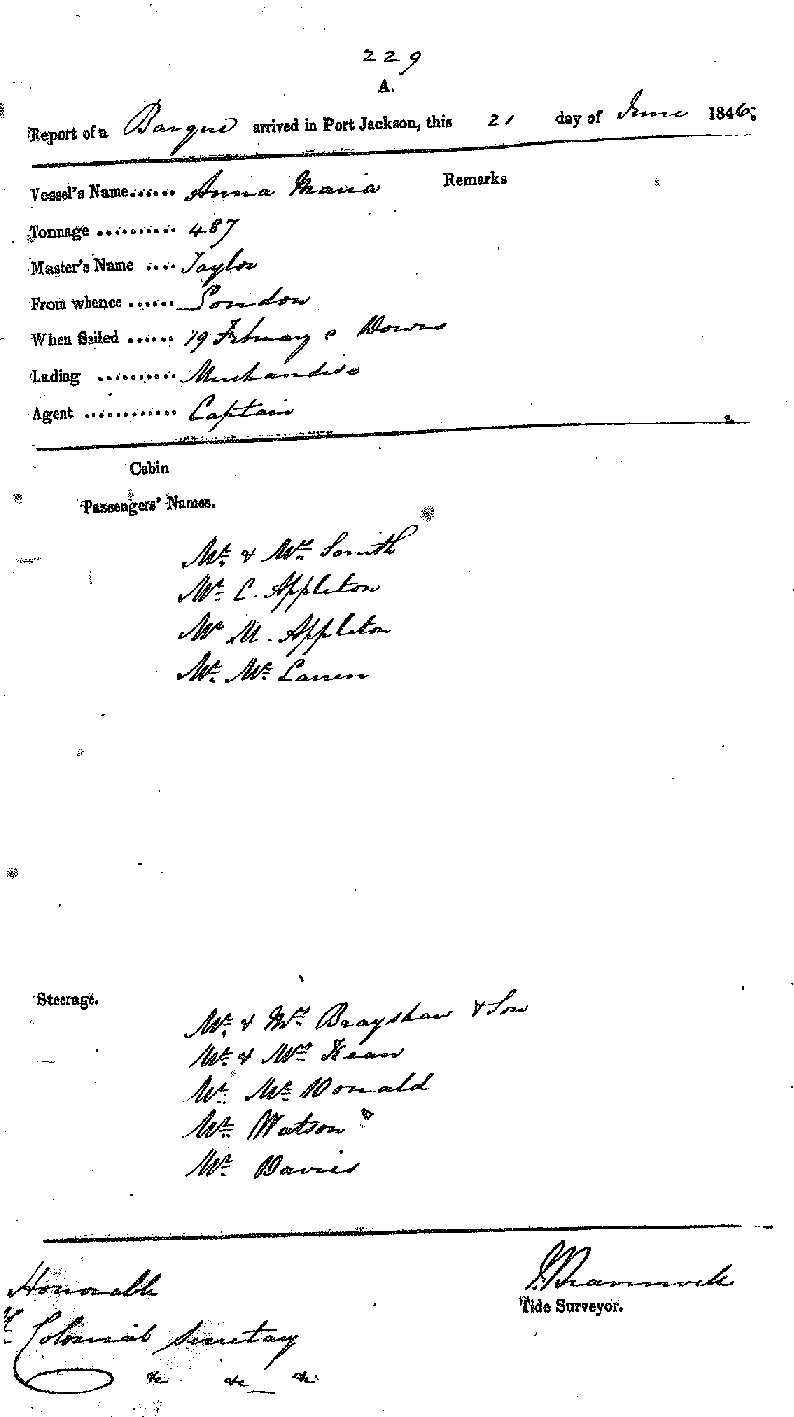 229
A.
Report of a Barque arrived in Port Jackson, this 21 day of June 1846;
Vessel's Name...... Anna Maria Remarks
Tonnage ........... 487
Master's Name .... Taylor
From whence ...... London
When Sailed ...... 19 February Downs
Lading .......... Merchandise
Agent ............ Captain
Cabin
Passengers' Names.
Mr. & Mrs. Smith
Mr. C. Appleton
Mr M. Appleton
Mr. Mc Laren
Steerage.
Mr. & Mrs. Brayshaw & Son
Mr. & Mrs. Kean
Mr. Mc Donald
Mr. Watson
Mr. Davies
Honorable
Tide Surveyor.
Colonial Secretary
&c &c &c